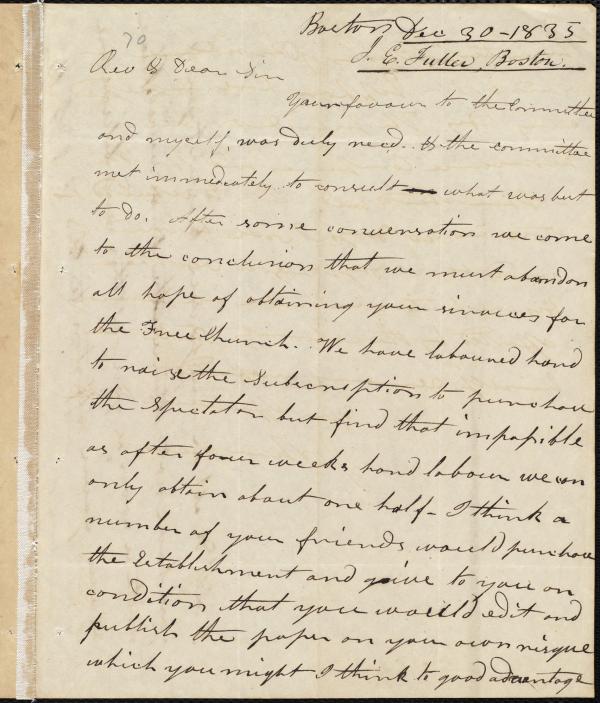 70
Boston Dec 30 - 1835
J. E. Fuller, Boston.
Rev & Dear Sir
Your favour to the Committee
and myself, was duly recd. & the committee
met immediately to consult what was best
to do. After some conversation we come
to the conclusion that we must abandon
all hope of obtaining your sirvices for
the Free Church. We have laboured hard
to raise the Subscription to purchase
the Spectator but find that impossible
as after four weeks hard labour we can
only obtain about one half - I think a
number of your friends would purchase
the Establishment and give to you on
condition that you would edit and
publish the paper on your own risque
which you might I think to good advantage